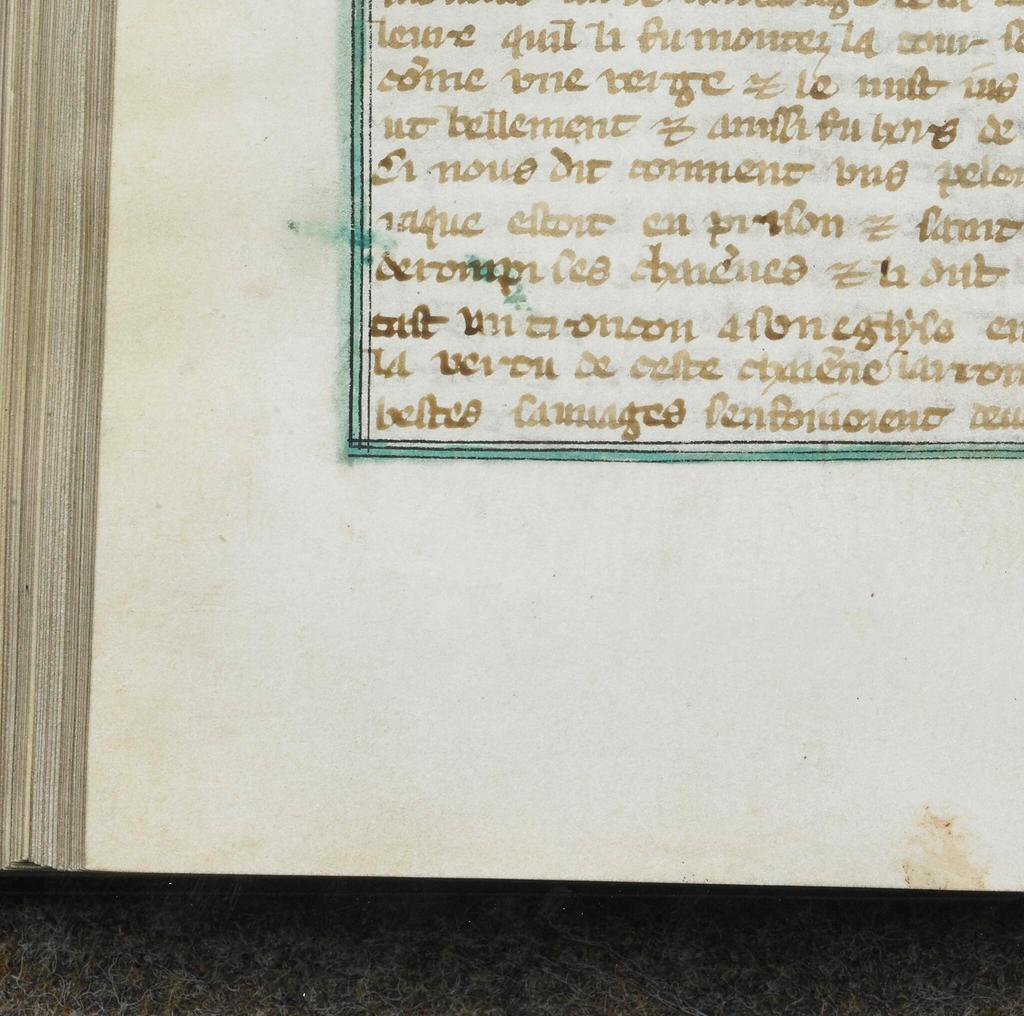 leure quil li fu montez la tour
cōme vne verge ⁊ le mist ius
ut bellement ⁊ auissi fu hors de
Ci nous dit comment vns peler
iaque estoit en prison ⁊ saint
derompi ses chaiēnes ⁊ li dist
tast un troncon a son eglyse en
la vertu de ceste chaiēne larron
bestes sauuages senfouioient deu